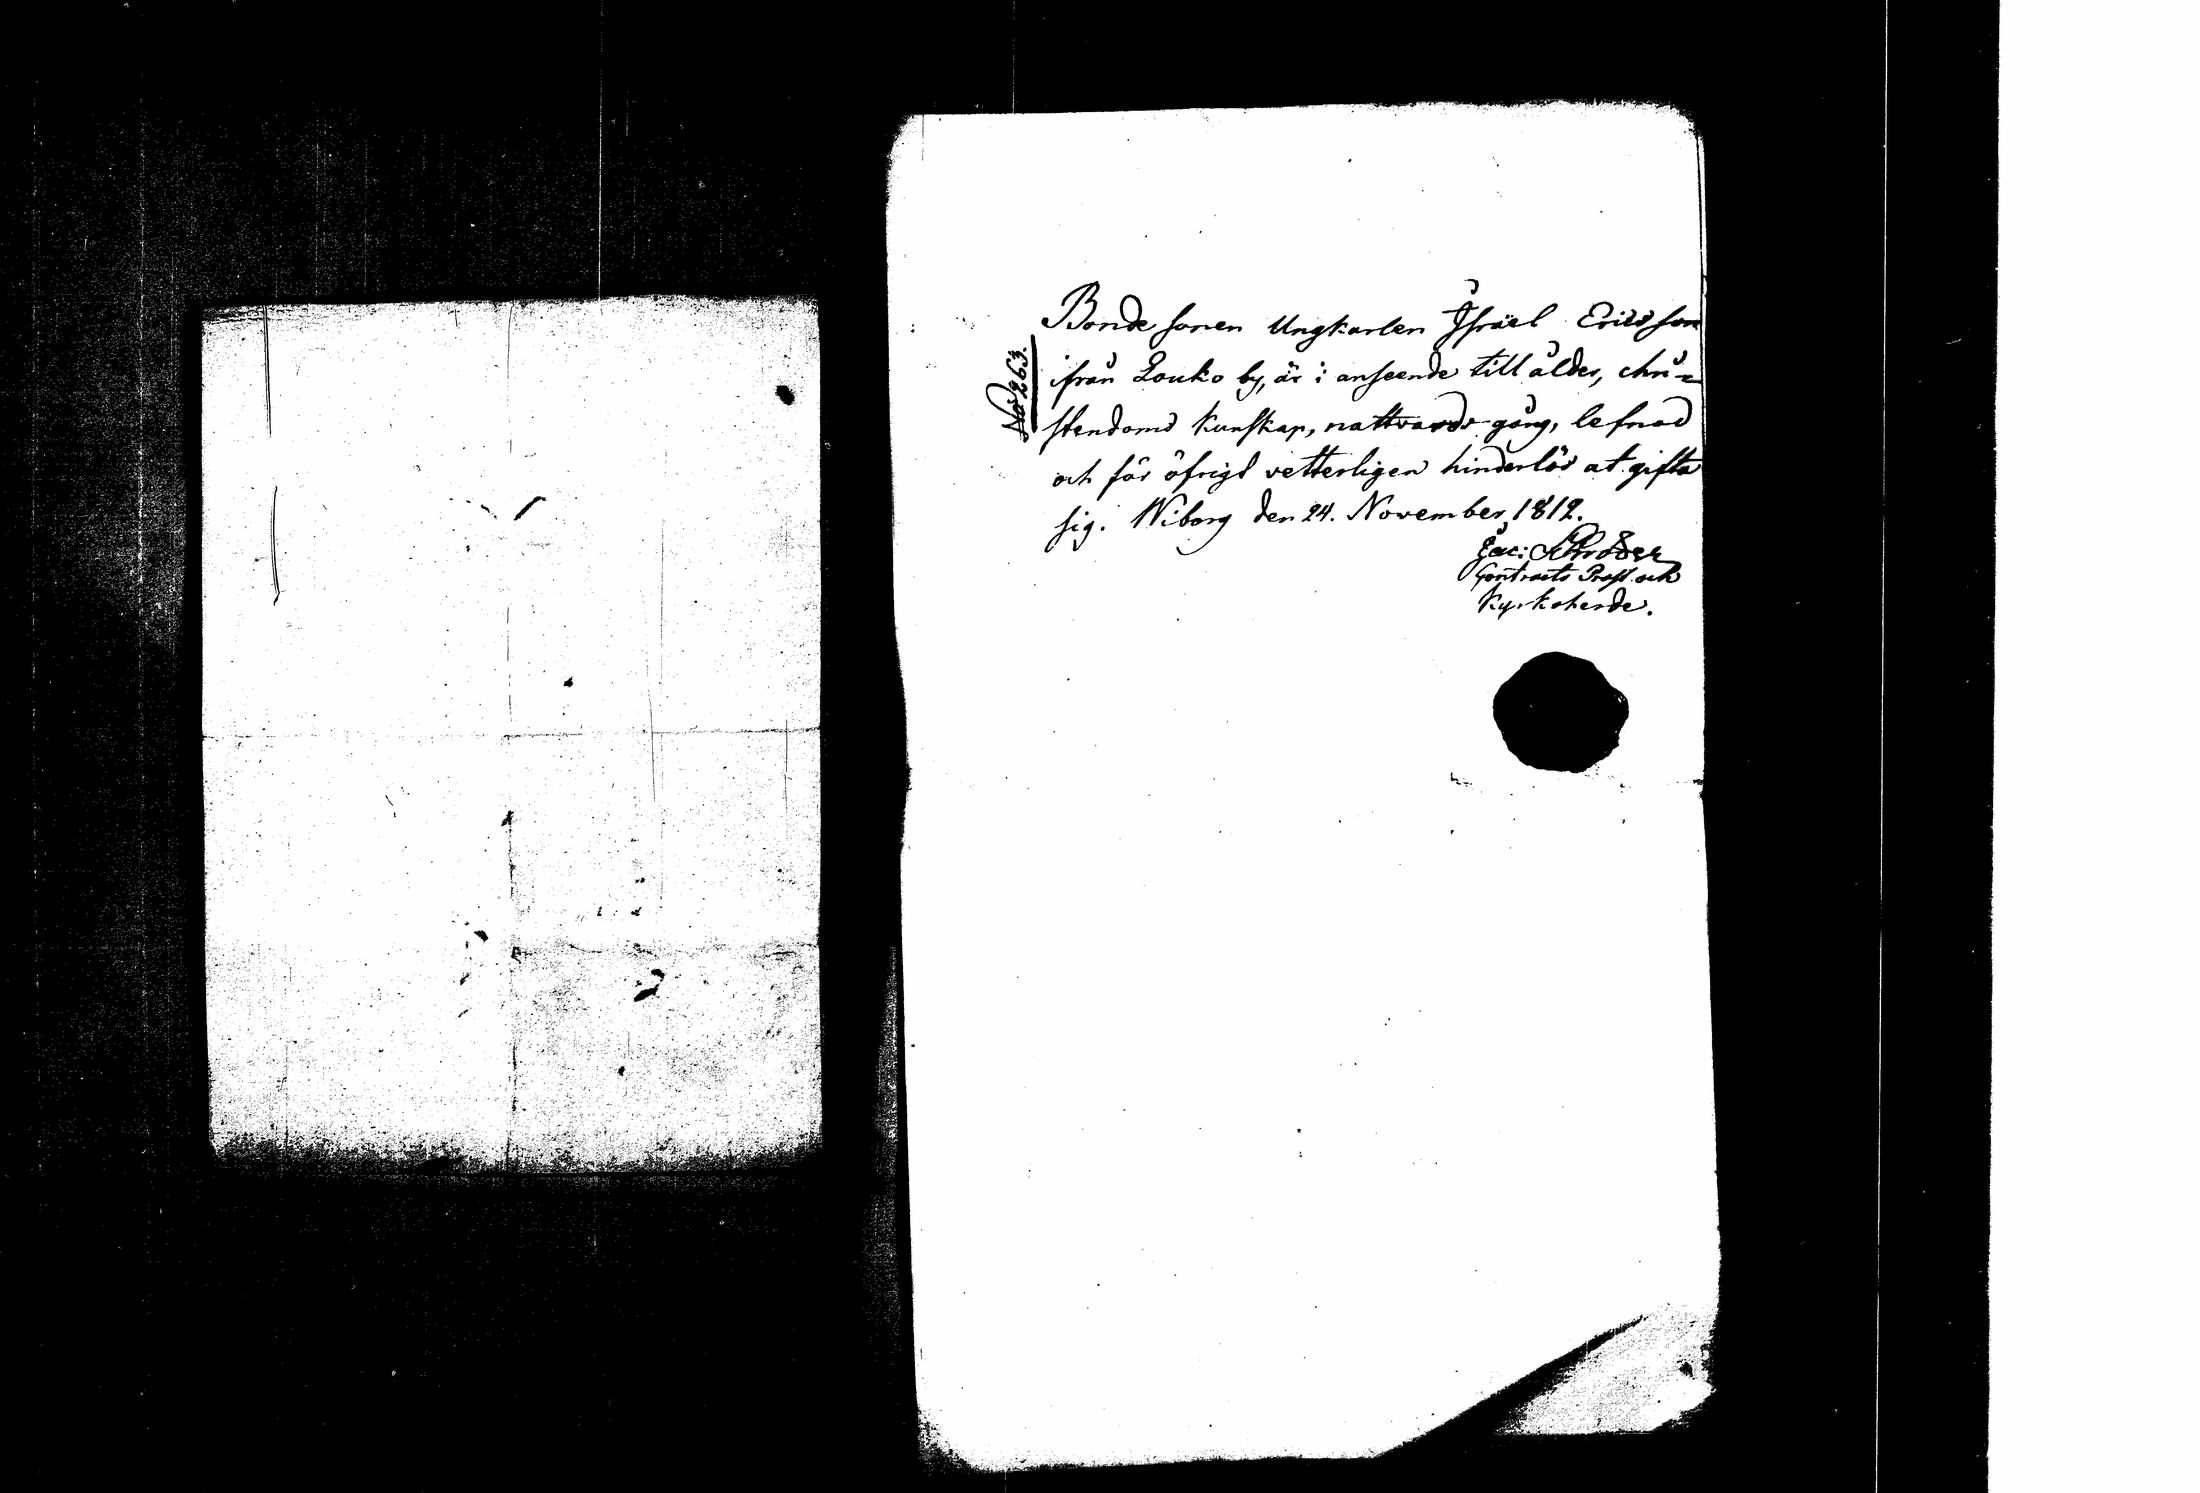 No 263.
Bonde sonen Ungkarlen Israel Ericsson
ifrån Louko by, är i anseende till ålder, chri=
stendoms kunskap, nattvards gång, lefnad
och för öfrigt vetterligen hinderlös at gifta
sig. Wiborg den 24. November 1812.
Jac: Schröder
Contracts Prost och
Kyrkoherde.